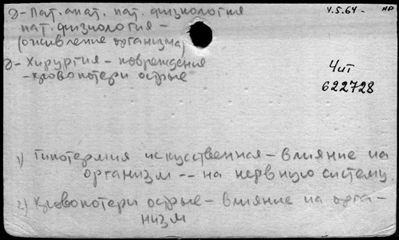 Э- Пат. анат. пат. физиология
4.5.64.-
НР
пат. физиология-
(оживление организма)
Э- Хирургия - повреждения
- кровопотери острые
Чит
622728
1) Гипотермия искусственная - влияние на
организм -- на нервную систему
2) Кровопотери острые - влияние на орга-
низм